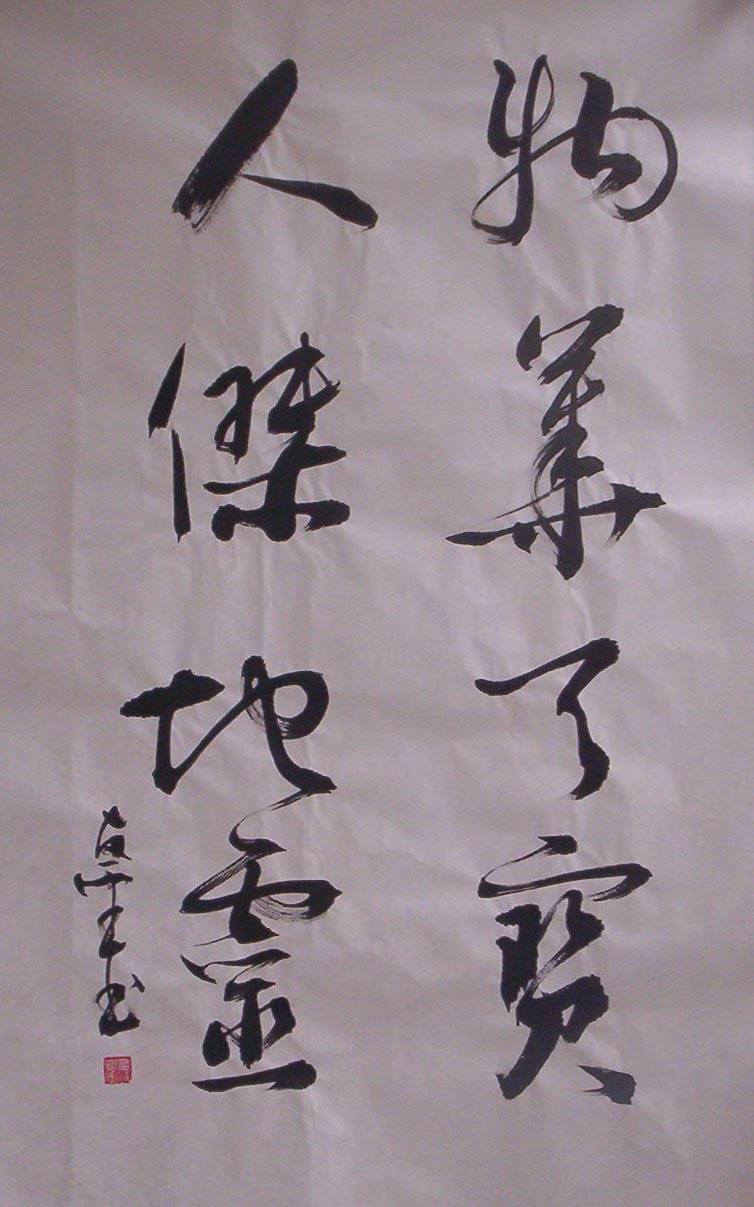 物華天寶
人傑地靈
书